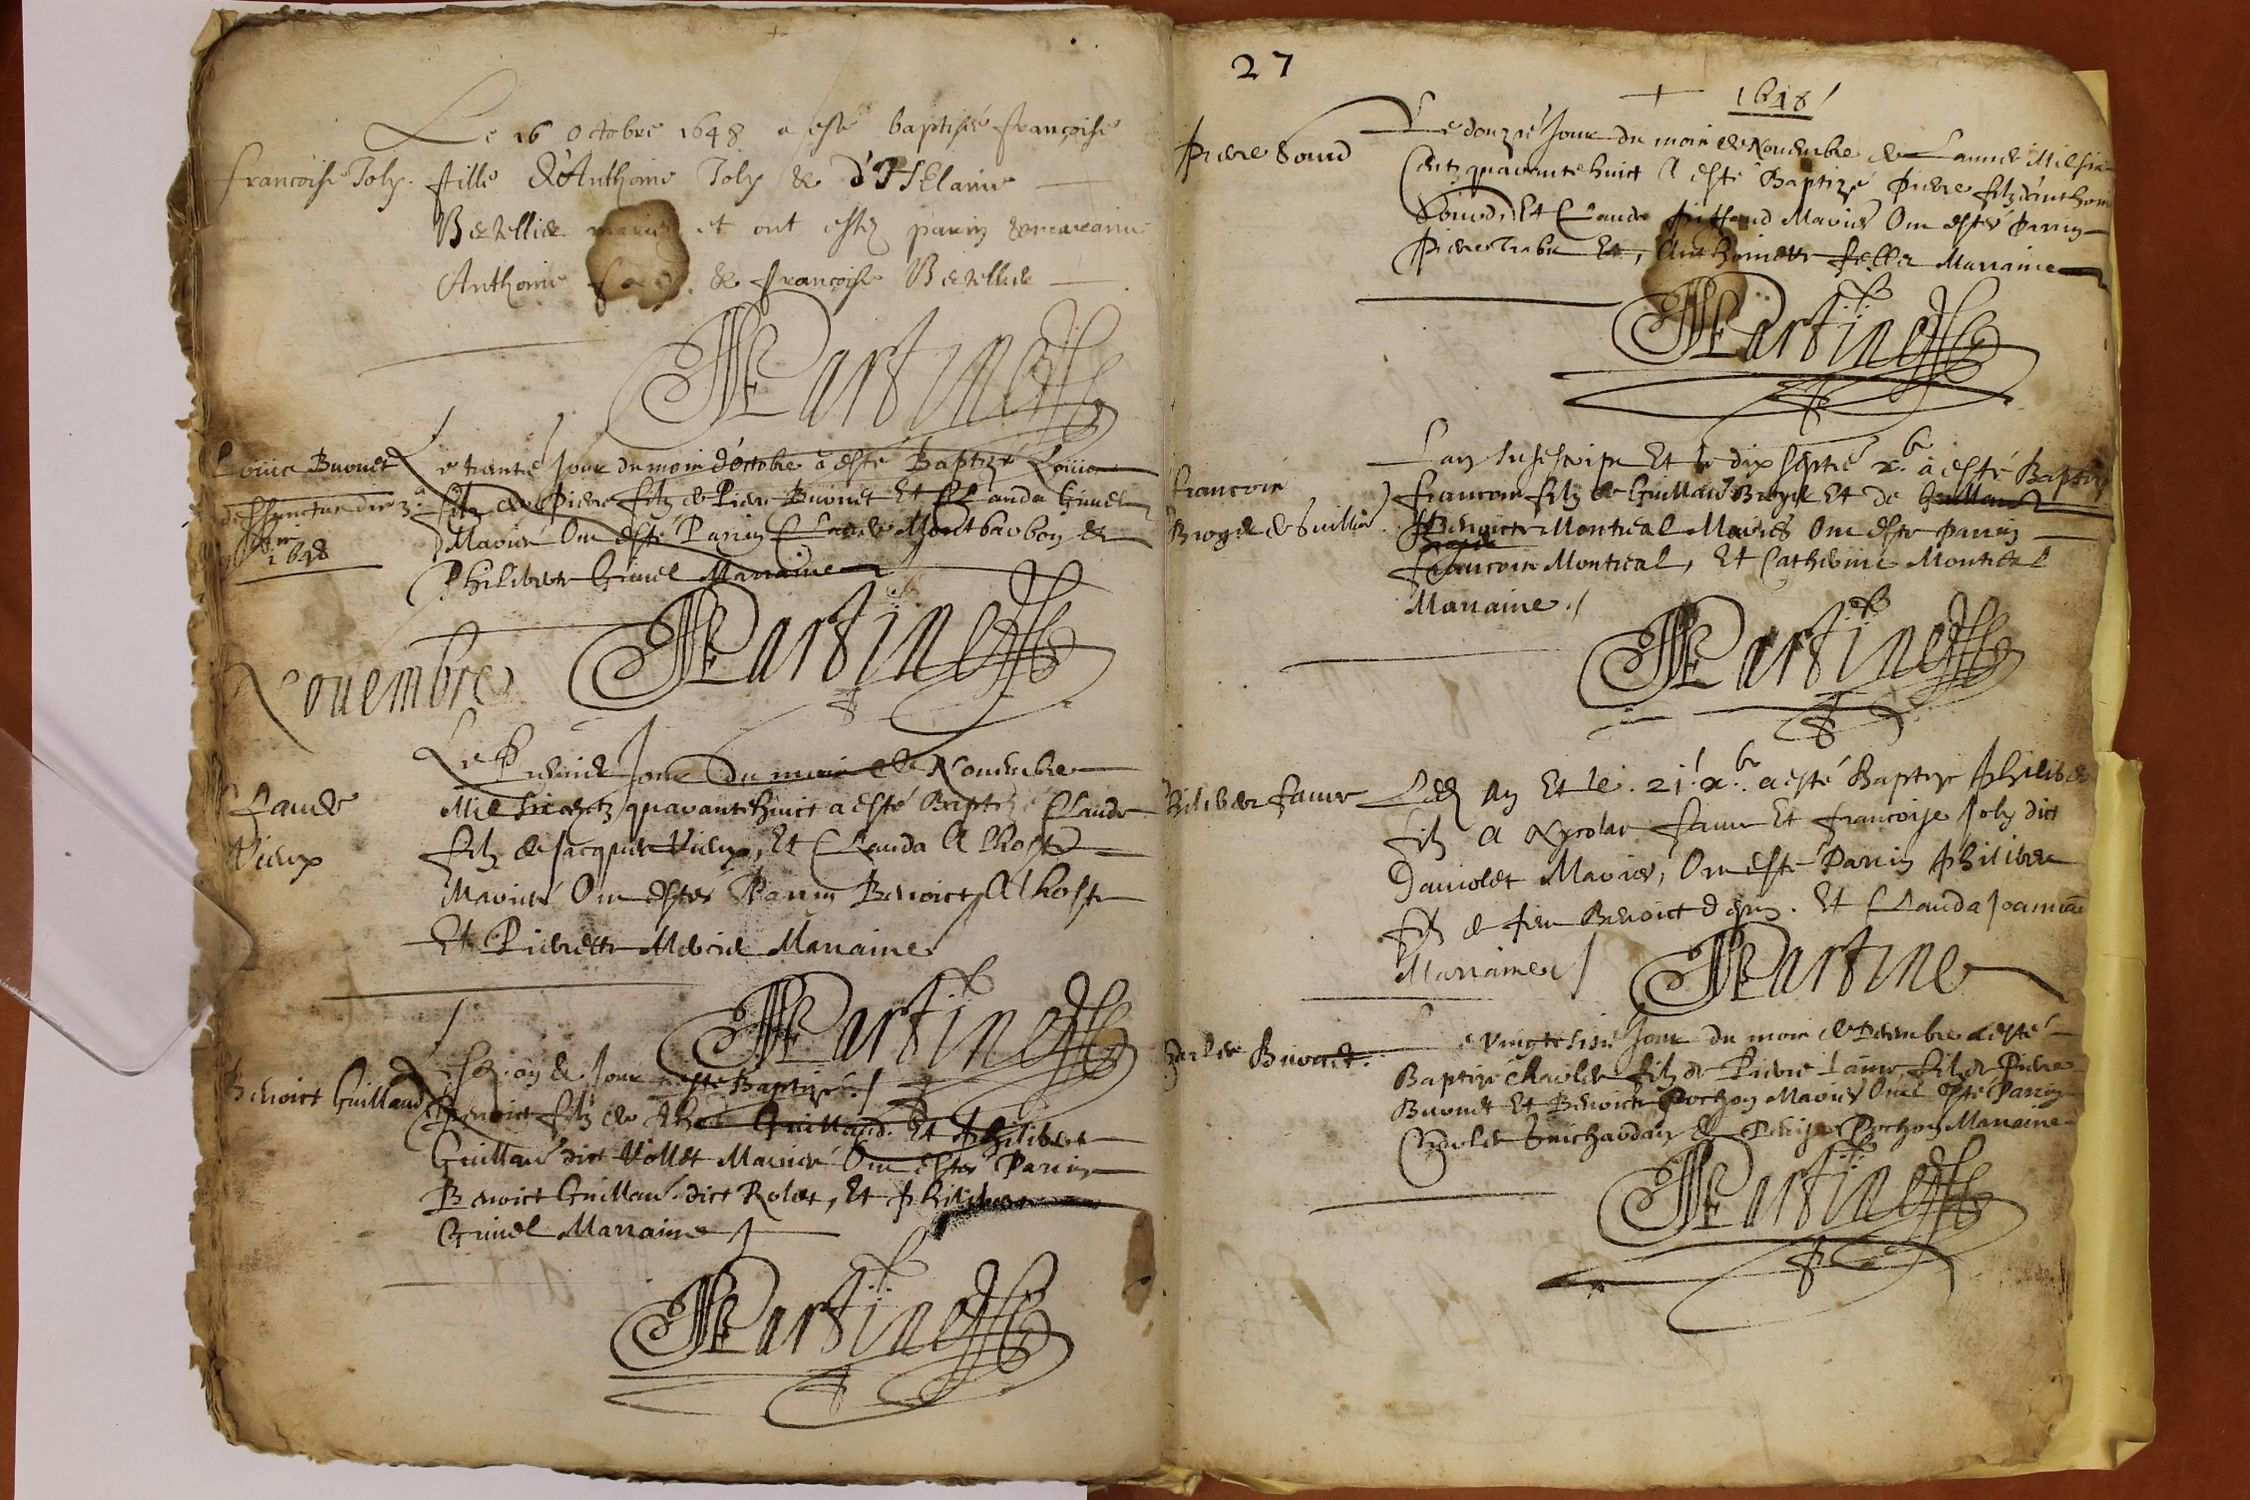 Le 16 octobre 1648 a esté baptisée françoise
francoise Joly. fille d'Anthoine Joly & d'Helaine
Berellier et ont estez parin & maraine
Anthoine & françoise Berellier
Martine
Louise Buonet
Le trantie Jour du mois d'octobre a esté Baptizé Louise
deffunctus die 3a
1648
filz de Pierre filz de Pierre Buonet Et Clauda Grinel
Mariés Ont esté Parin Claude Montbarbon &
Philiberte Grinel Marraine
Martine
Nouembre
Le Premier Jour du mois de Nouembre
Claude
Vieux
Mil six centz quarante huict a esté Baptizé Claude
filz de Jacques Vieux, Et Clauda A Lhoste
Mariés Ont estés Parin Benoict A Lhoste
Et Pierrette Mercier Marraine
Martine
Benoict Guillaud
an & Jour a esté Baptizé
Benoict filz de Guillaud Et Philiberte
Guillaud dict Vollet Mariés Ont estés Parin
Benoict Guillaud dict Rolet, Et Philiberte
Grinel Marraine
Martine
27
1648
Pierre
Le douzie Jour du mois de Nouembre de Lannee Mil six
Centz quarante huict A esté Baptizé Pierre filz d'anthoine
Et Clauda Mariés Ont estés Parin
Pierre Et, Anthoinette Marraine
Martine
francois
Broyer de Guillaud
Lan susescript Et le dix septie xbr a esté Baptizé
francois filz de Guillaud Broyer Et de
Benoicte Montreal Mariés Ont esté Parin
francois Montreal, Et Catherine Montreal
Marraine.
Martine
Philibert faure
Led An Et le. 21. xbr. a esté Baptizé Philibert
filz A Nycolas faure Et francoise Joly dict
Daniolet Mariés, Ont esté Parin Philibert
filz de feu Benoict Et Clauda
Marraine
Martine
Charles Buonet.
Le vingt sixie Jour du mois de Decembre a esté
Baptizé Charles filz de Pierre filz de Pierre
Buonet Et Benoicte Pochon Mariés Ont esté Parin
Charles & Pochon Marraine
Martine